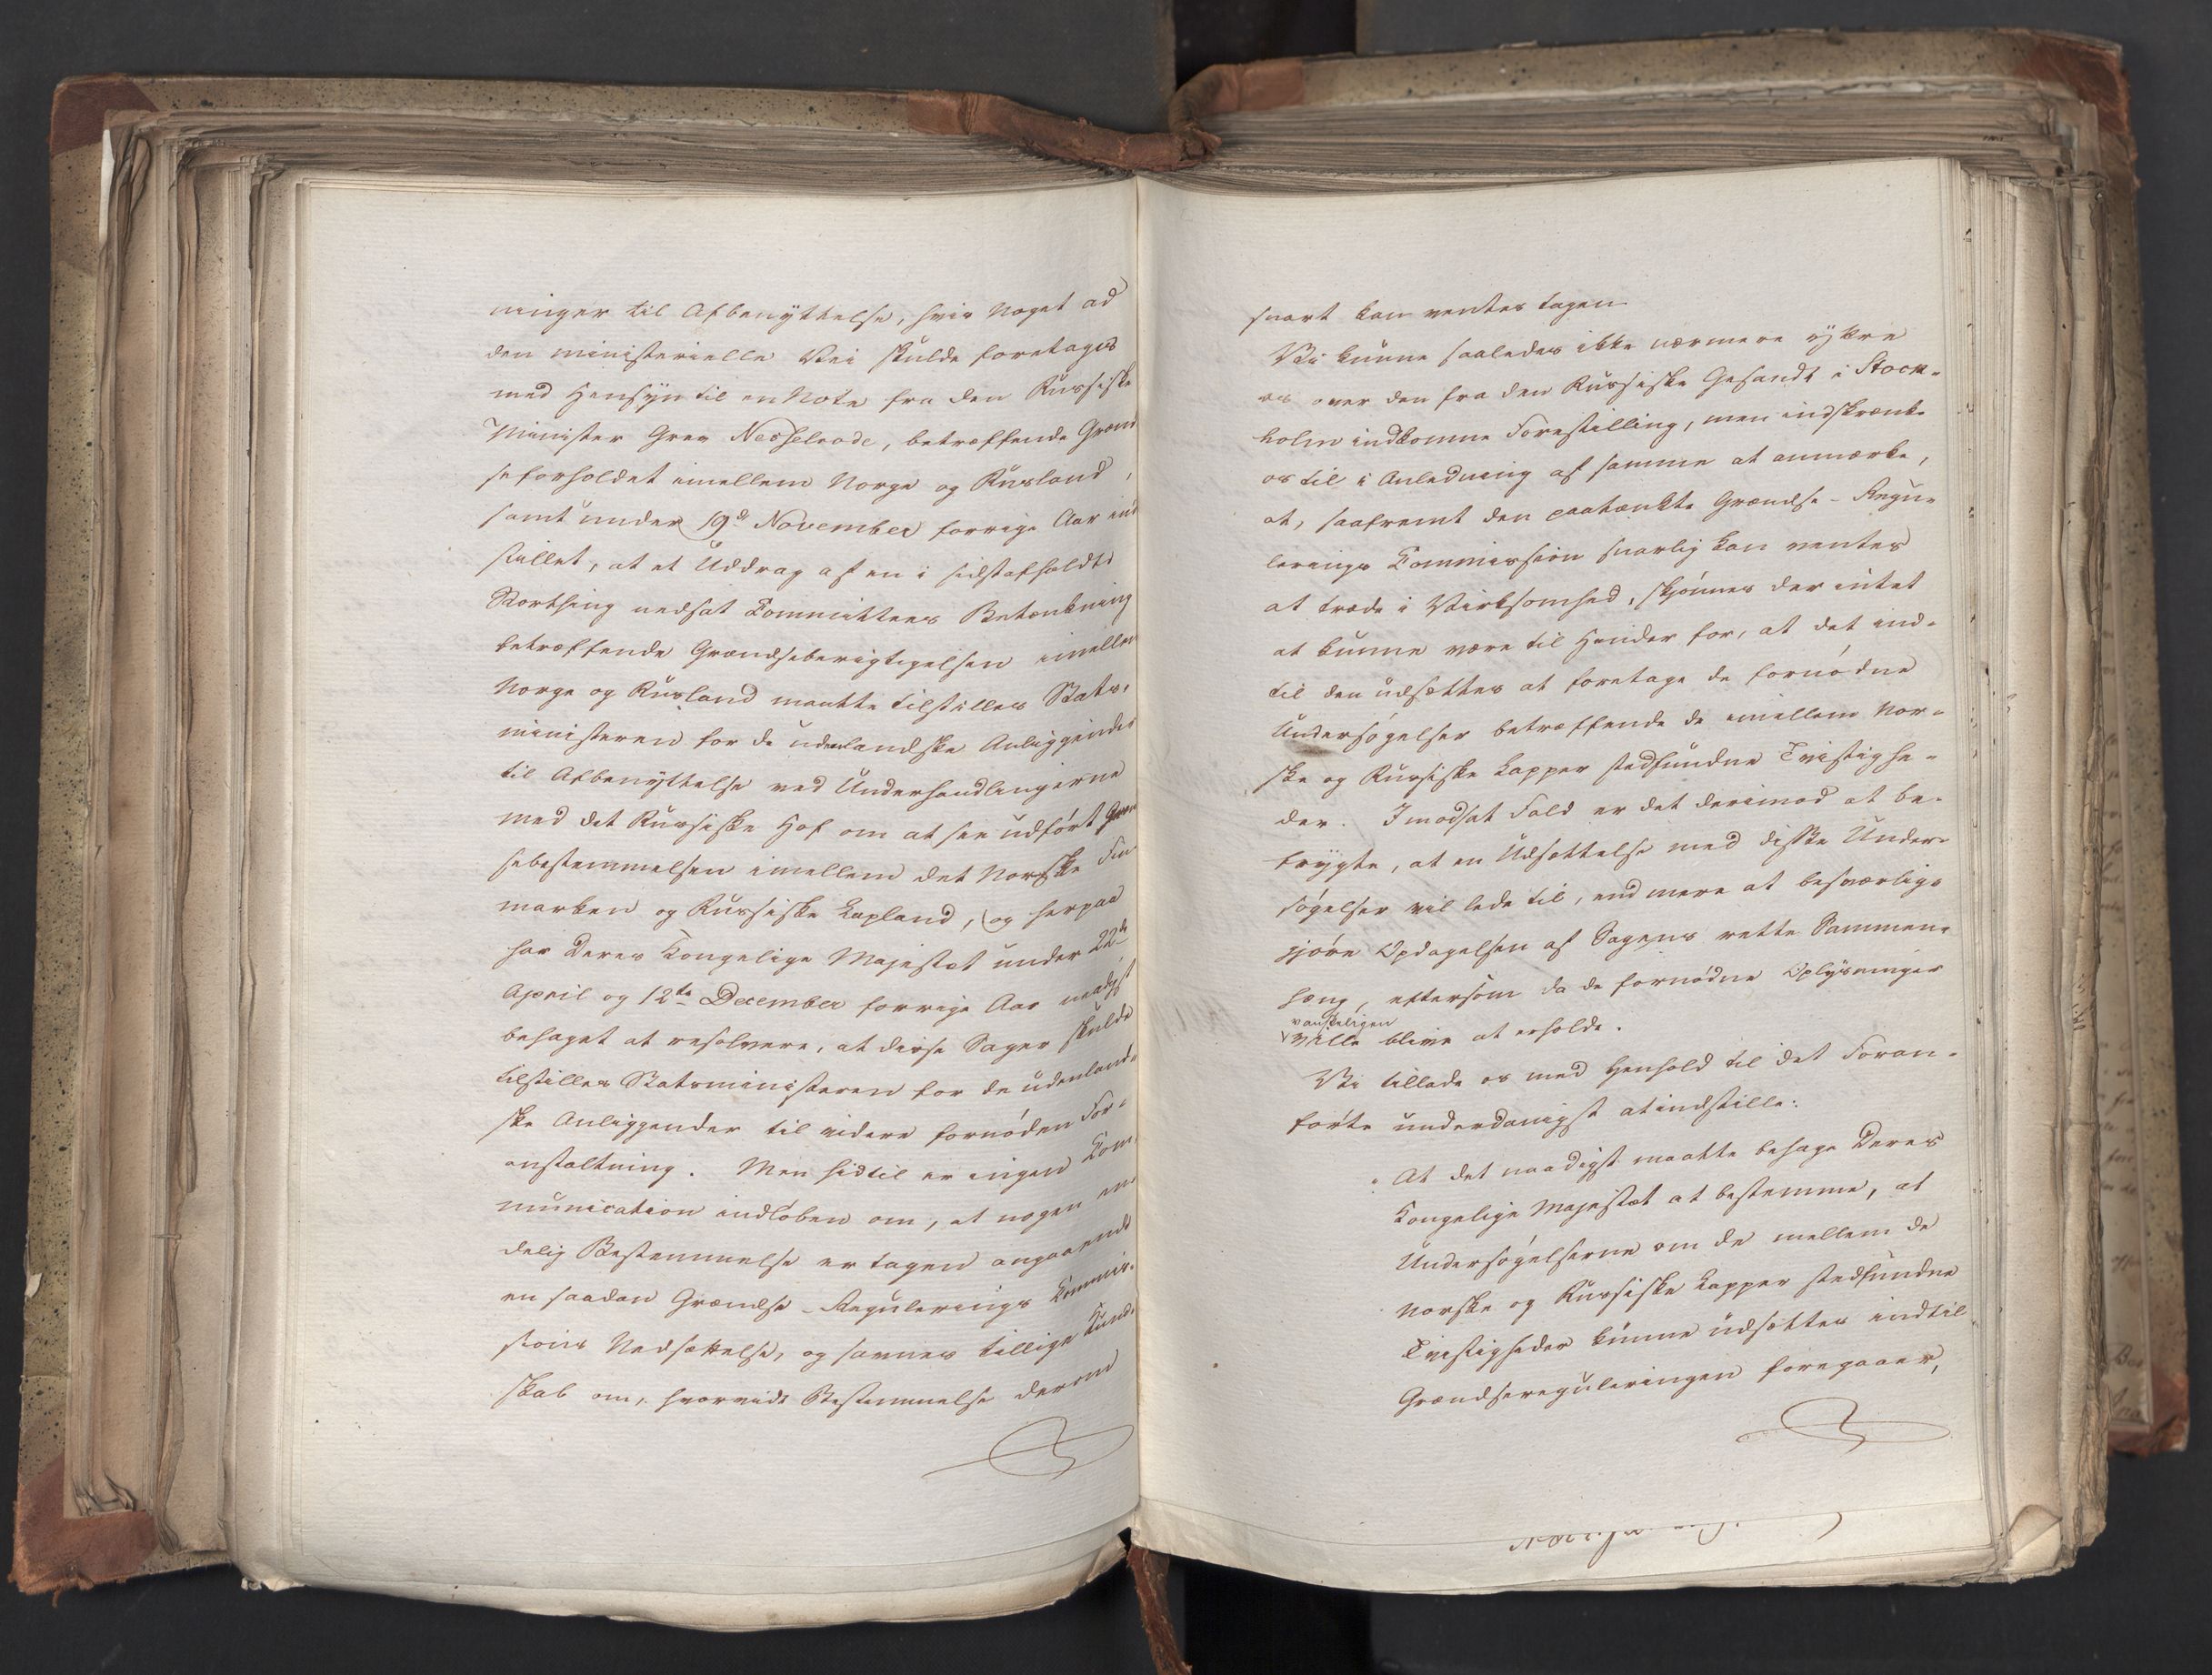 ninger til Afbenyttelse, hvis Noget ad
den ministerielle Vei skulde foretages
med Hensyn til en Note fra den Russiske
Minister Grev Nesselrode, betræffende Grænd
seforholdet imellem Norge og Rusland,
samt under 19de November forrige Aar ind
stillet, at et Uddrag af en i sidstafholdte
Storthing nedsat Committees Betænkning
betræffende Grændseberigtigelsen imellem
Norge og Rusland maatte tilstilles Stats-
ministeren for de udenlandske Anliggender
til Afbenyttelse ved Underhandlingerne
med det Russiske Hof om at see udført Græn
sebestemmelsen imellem det Norske Fin
marken og Russiske Lapland, og herpaa
har Deres Kongelige Majestæt under 22de
April og 12te December forrige Aar naadigst
behaget at resolvere, at disse Sager skulde
tilstilles Statsministeren for de udenland-
ske Anliggender til videre fornøden For-
anstaltning. Men hidtil er ingen Com
munication indløben om, at nogen en
delig Bestemmelse er tagen angaaende
en saadan Grændse-Regulerings Commis-
sions Nedsættelse, og savnes tillige Kund-
skab om, hvorvidt Bestemmelse derom
snart kan ventes tagen.
Vi kunne saaledes ikke nærmere yttre
os over den fra den Russiske Gesandt i Stock-
holm indkomne Forestilling, men indskrænke
os til i Anledning af samme at anmærke,
at, saafremt den paatænkte Grændse-Regu-
lerings Commission snarlig kan ventes
at træde i Virksomhed, skjønnes der intet
at kunne være til Hinder for, at det ind-
til den udsættes at foretage de fornødne
Undersøgelser betræffende de imellem Nor-
ske og Russiske Lapper stedfundne Tvistighe-
der. I modsat Fald er det derimod at be-
frygte, at en Udsættelse med disse Under-
søgelser vil lede til, end mere at besværlig-
gjøre Opdagelsen af Sagens rette Sammen-
hæng, eftersom da de fornødne Oplysninger
vanskeligen
ville blive at erholde.
Vi tillade os med Henhold til det Foran-
førte underdanigst at indstille:
At det naadigst maatte behage Deres
Kongelige Majestæt at bestemme, at
Undersøgelserne om de mellem de
Norske og Russiske Lapper stedfundne
Tvistigheder kunne udsættes indtil
Grændsereguleringen foregaaer,